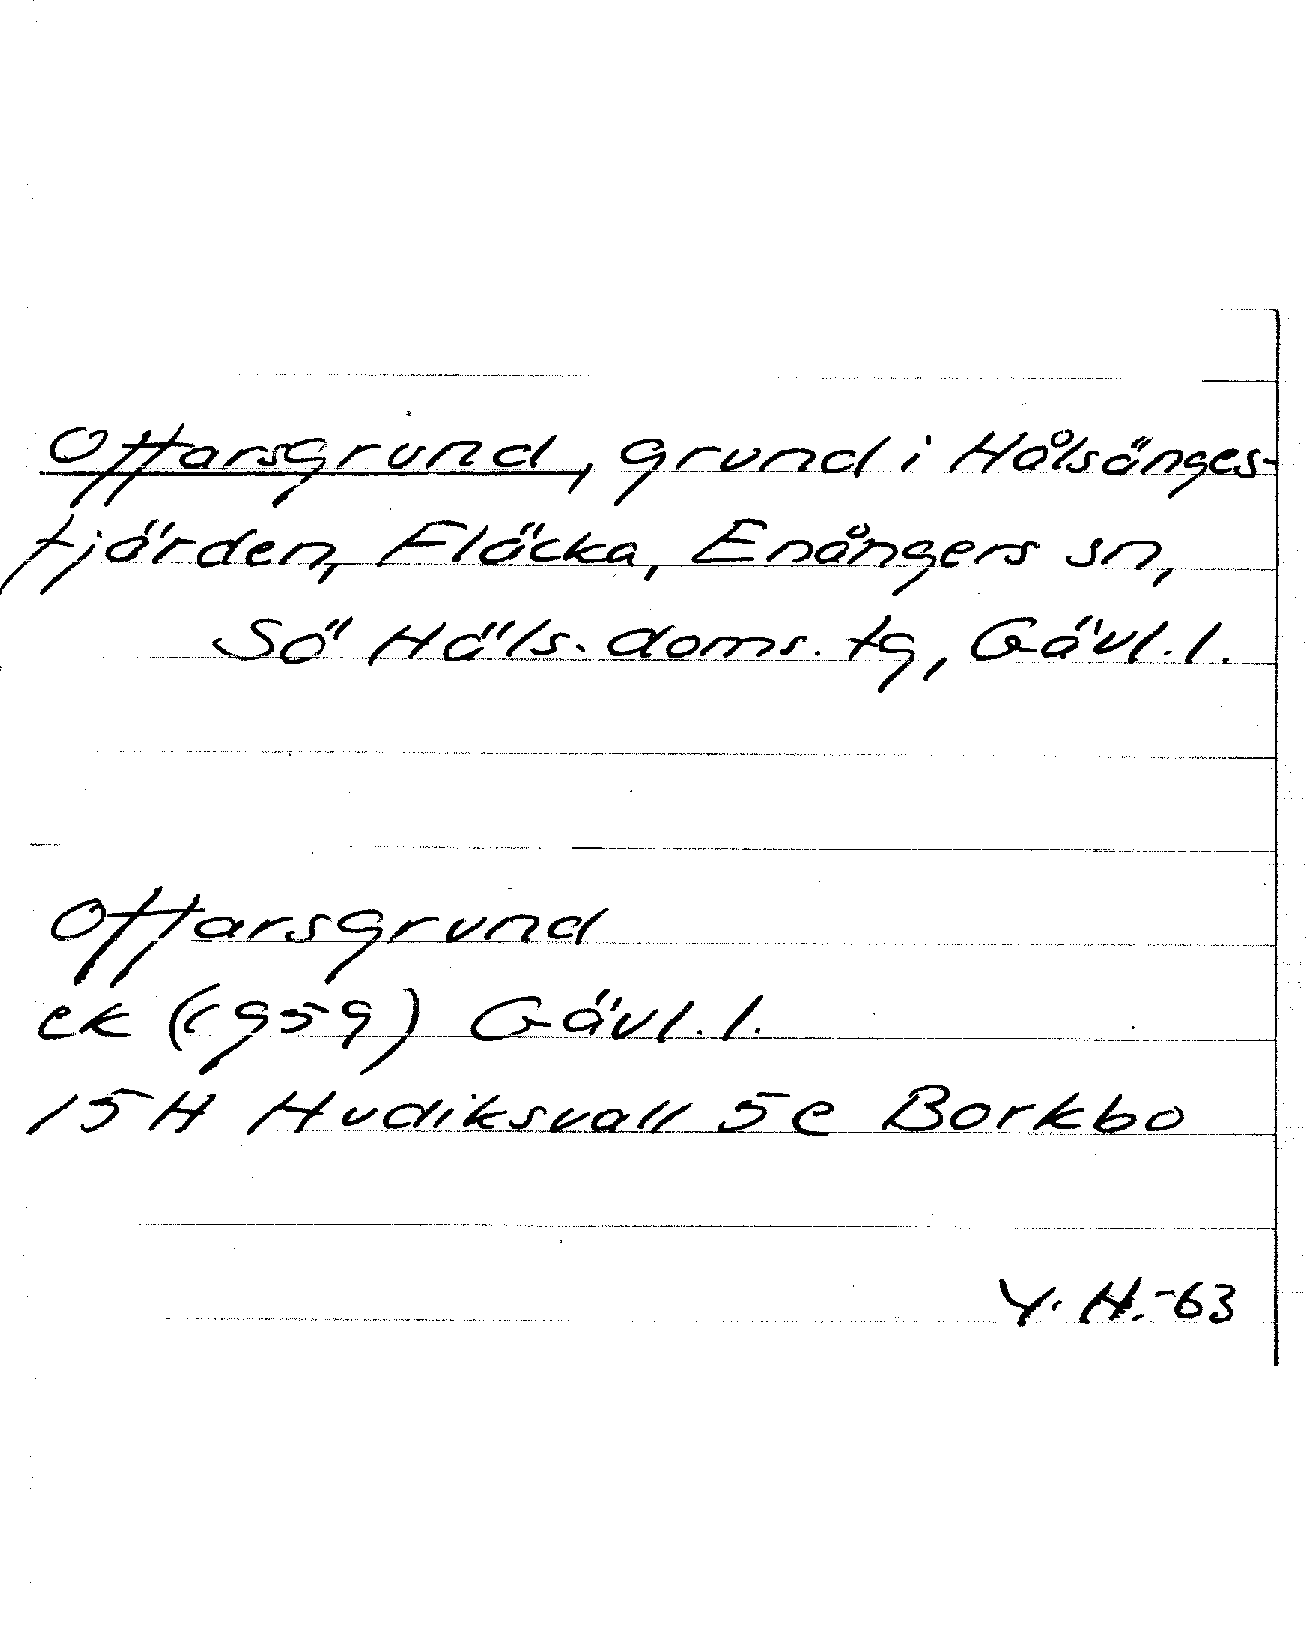 Offarsgrund, grund i Hålsänges-
fjärden, Fläcka, Enångers sn,
Sö Häls. doms. tg, Gävl. l.
Offarsgrund
ek (1959) Gävl. l.
15H Hudiksvall 5e Borkbo
Y. H. -63